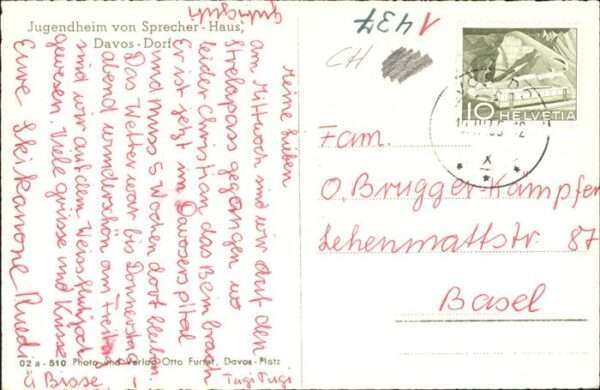 Jugendheim von Sprecher-Haus,
Davos-Dorf
1437
CH
10 HELVETIA
Meine Lieben
am Mittwoch sind wir auf den
Strelapass gegangen wo
leider Christian das Bein brach
Er ist jetzt im Davoserspital
und muss 5 Wochen dort bleiben
Das Wetter war bis Donnerstag
abend wunderschön am Freitag
sind wir auf dem Weissfluhjoch
gewesen. Viele grüsse und Küsse
Eure Skikanone Ruedi
Fam.
O. Brugger-Kämpfer
Lehenmattstr. 87
Basel
02 a - 510 Photo und Verlag Otto Furter, Davos-Platz